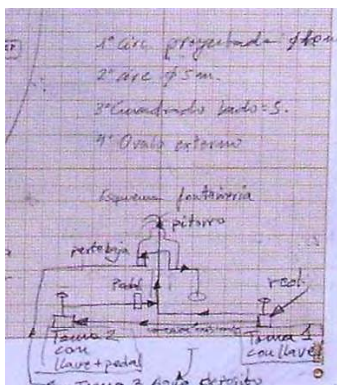 1º circ proyectada
2º circ φ 5m.
3º Cuadrado lado = 5.
4º Ovalo externo
Esquema fontanería
pitorro
parte baja
Pedal
red.
Toma 2
con
llave + pedal
Toma 1
con llave
Toma 3 para depósito